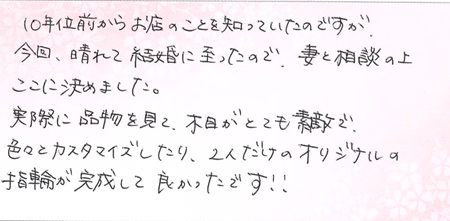 10年位前からお店のことを知っていたのですが、
今回、晴れて結婚に至ったので、妻と相談の上
ここに決めました。
実際に品物を見て、木目がとても素敵で、
色々とカスタマイズしたり、2人だけのオリジナルの
指輪が完成して良かったです!!